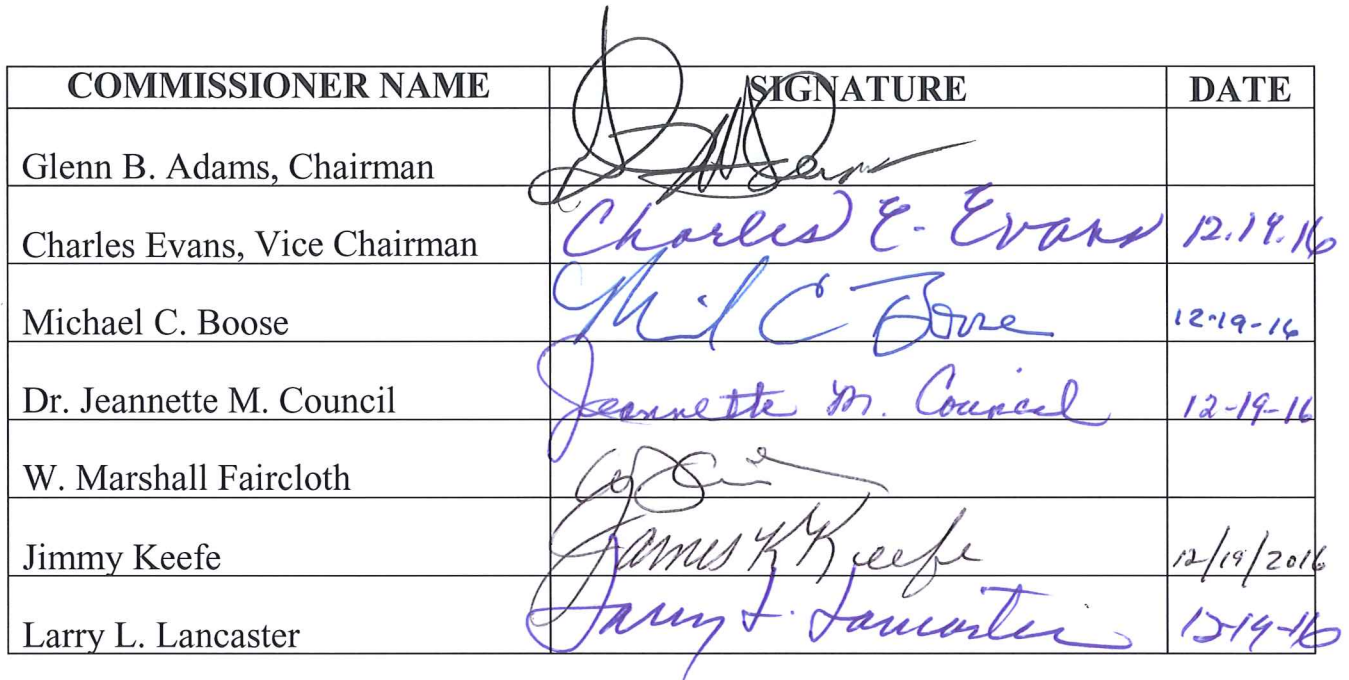 COMMISSIONER NAME SIGNATURE DATE
Glenn B. Adams, Chairman
Charles Evans, Vice Chairman Charles E. Evans 12.19.16
Michael C. Boose Mich C Boose 12-19-16
Dr. Jeannette M. Council Jeannette M. Council 12-19-16
W. Marshall Faircloth
Jimmy Keefe James K Keefe 12/19/2016
Larry L. Lancaster Larry L. Lancaster 12-19-16